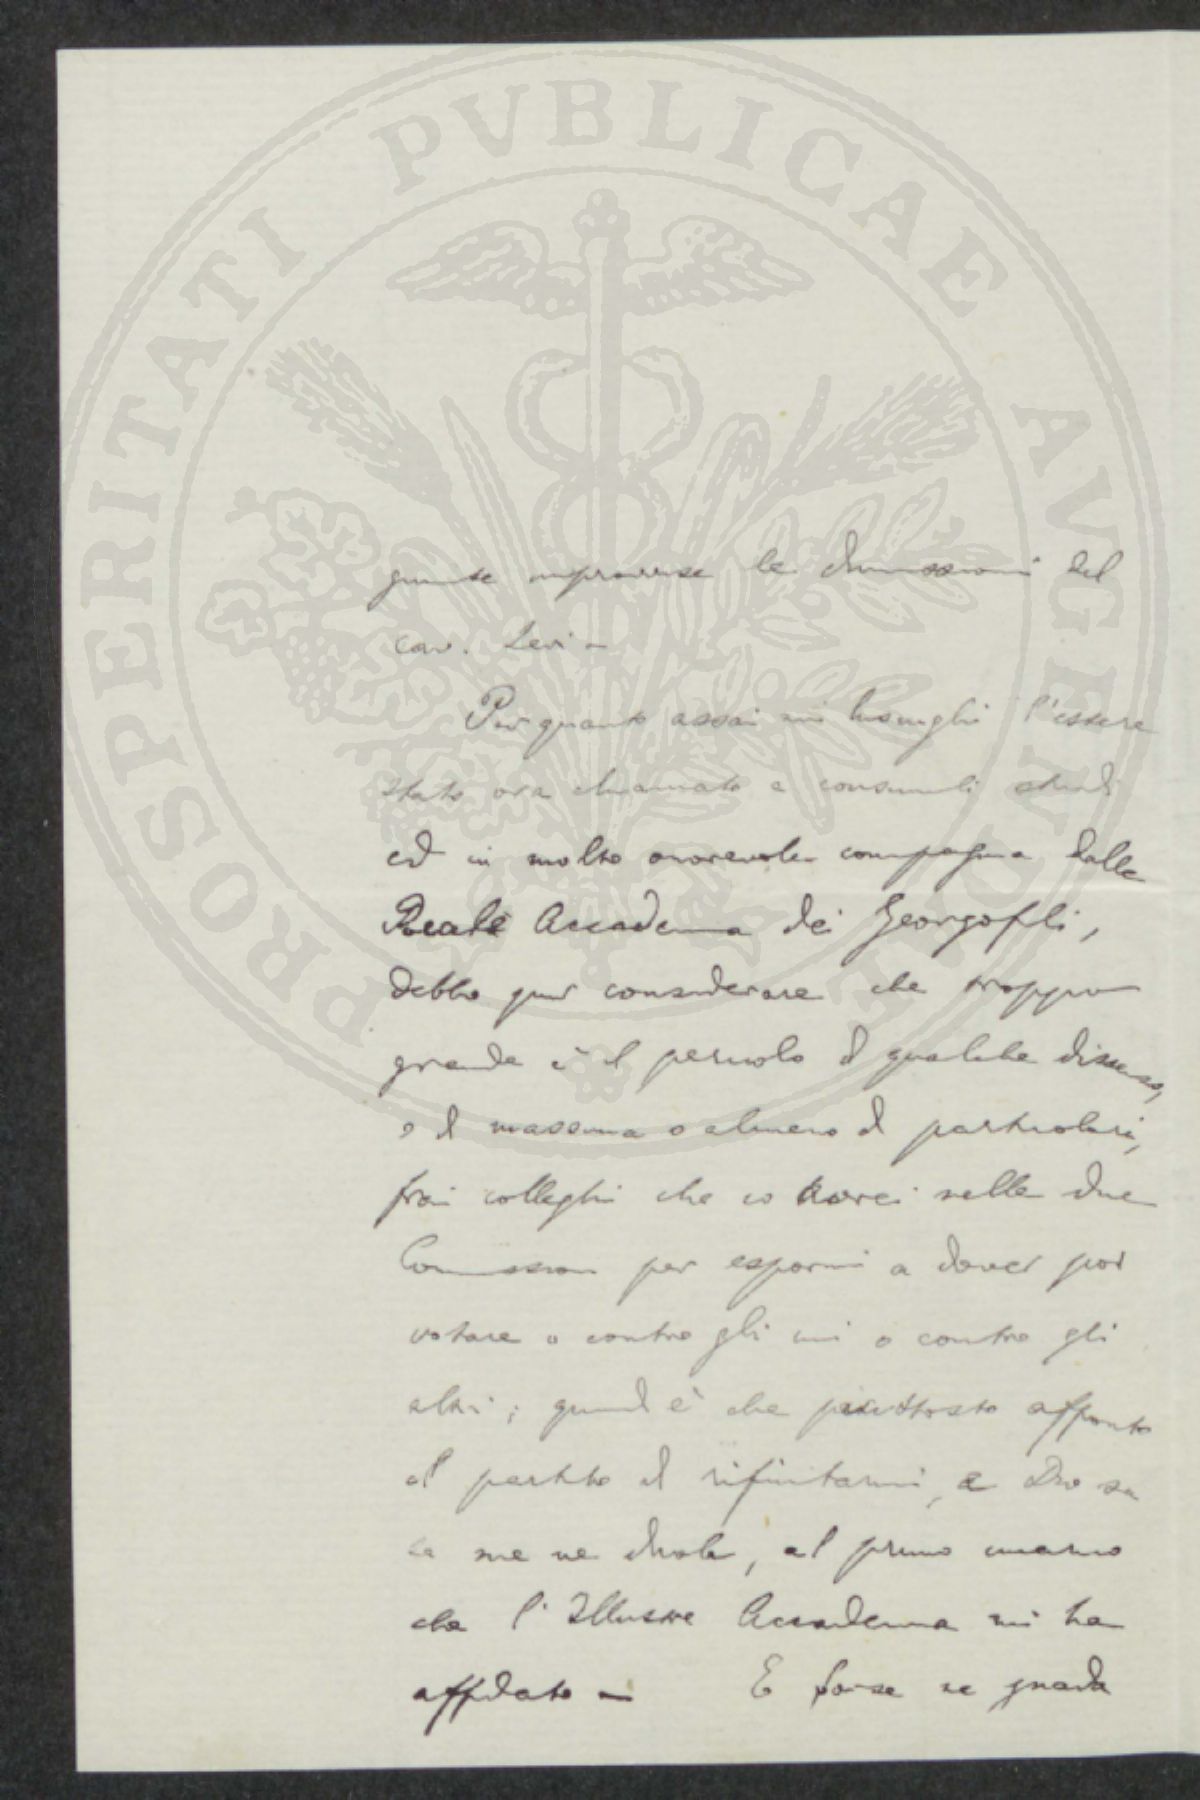 PROSPERITATI PVBLICAE AVGENDAE
giunte improvvise le dimissioni del
cav. Levi —
Per quanto assai mi lusinghi l'essere
stato ora chiamato a consimili studi
ed in molto onorevole compagnia dalla
Reale Accademia dei Georgofili,
debbo pur considerare che troppo
grande è il pericolo d qualche dissenso,
o d massima o almeno d particolari,
frai colleghi che io avrei nelle due
Commissioni per espormi a dover poi
votare o contro gli uni o contro gli
altri; quind è che piuttosto
al partito d rifiutarmi, e Dio sa
se me ne duole, al primo
che l'Illustre Accademia mi ha
affidato — E forse se